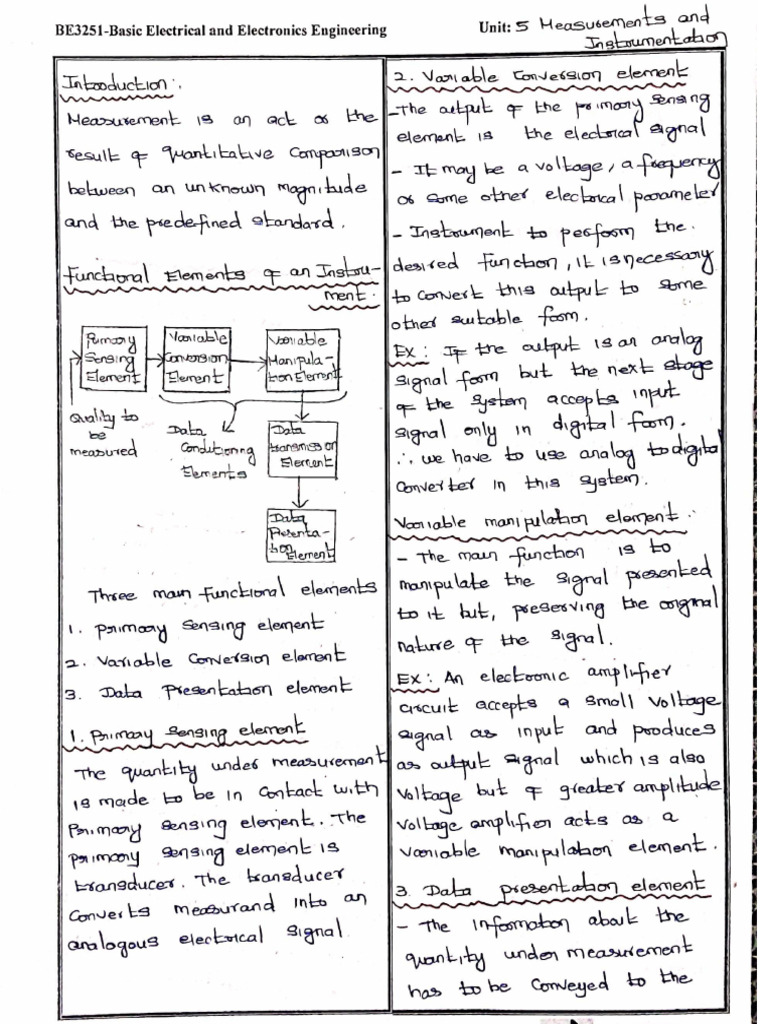 BE3251-Basic Electrical and Electronics Engineering
Unit: 5 Measurements and
Instrumentation
Introduction:
Measurement is an act or the
result of quantitative comparison
between an unknown magnitude
and the predefined standard.
Functional Elements of an Instru-
ment.
Primary
Sensing
Element
Variable
Conversion
Element
Variable
Manipula-
tion Element
Quality to
be
measured
Data
Conditioning
Elements
Data
transmission
Element
Data
Presenta-
tion Element
Three main functional elements
1. Primary Sensing element
2. Variable Conversion element
3. Data Presentation element
1. Primary Sensing element
The quantity under measurement
is made to be in contact with
Primary sensing element. The
primary sensing element is
transducer. The transducer
converts measurand into an
analogous electrical signal
2. Variable Conversion element
-The output of the primary sensing
element is the electrical signal
- It may be a voltage, a frequency
or some other electrical parameter
- Instrument to perform the
desired function, it is necessary
to convert this output to some
other suitable form.
Ex: If the output is an analog
signal form but the next stage
of the system accepts input
signal only in digital form.
∴ we have to use analog to digital
converter in this system.
Variable manipulation element:
- The main function is to
manipulate the signal presented
to it but, preserving the original
nature of the signal.
Ex: An electronic amplifier
circuit accepts a small voltage
signal as input and produces
as output signal which is also
voltage but of greater amplitude
voltage amplifier acts as a
variable manipulation element.
3. Data presentation element
- The information about the
quantity under measurement
has to be conveyed to the